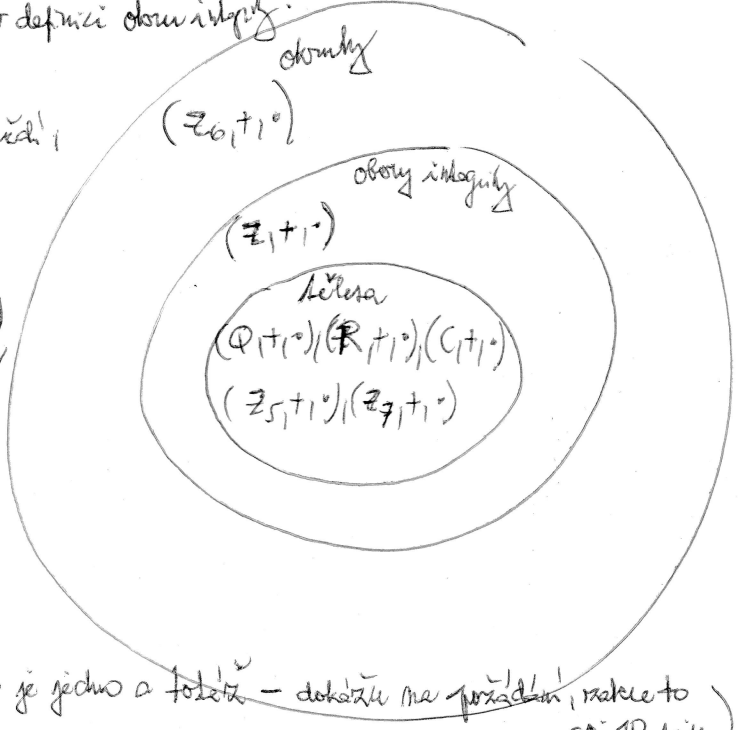 definici oboru integrity.
okruhy
(Z₆,+,·)
obory integrity
(Z,+,·)
tělesa
(Q,+,·),(R,+,·),(C,+,·)
(Z₅,+,·),(Z₇,+,·)
je jedno a totéž – dokážu na požádání, to